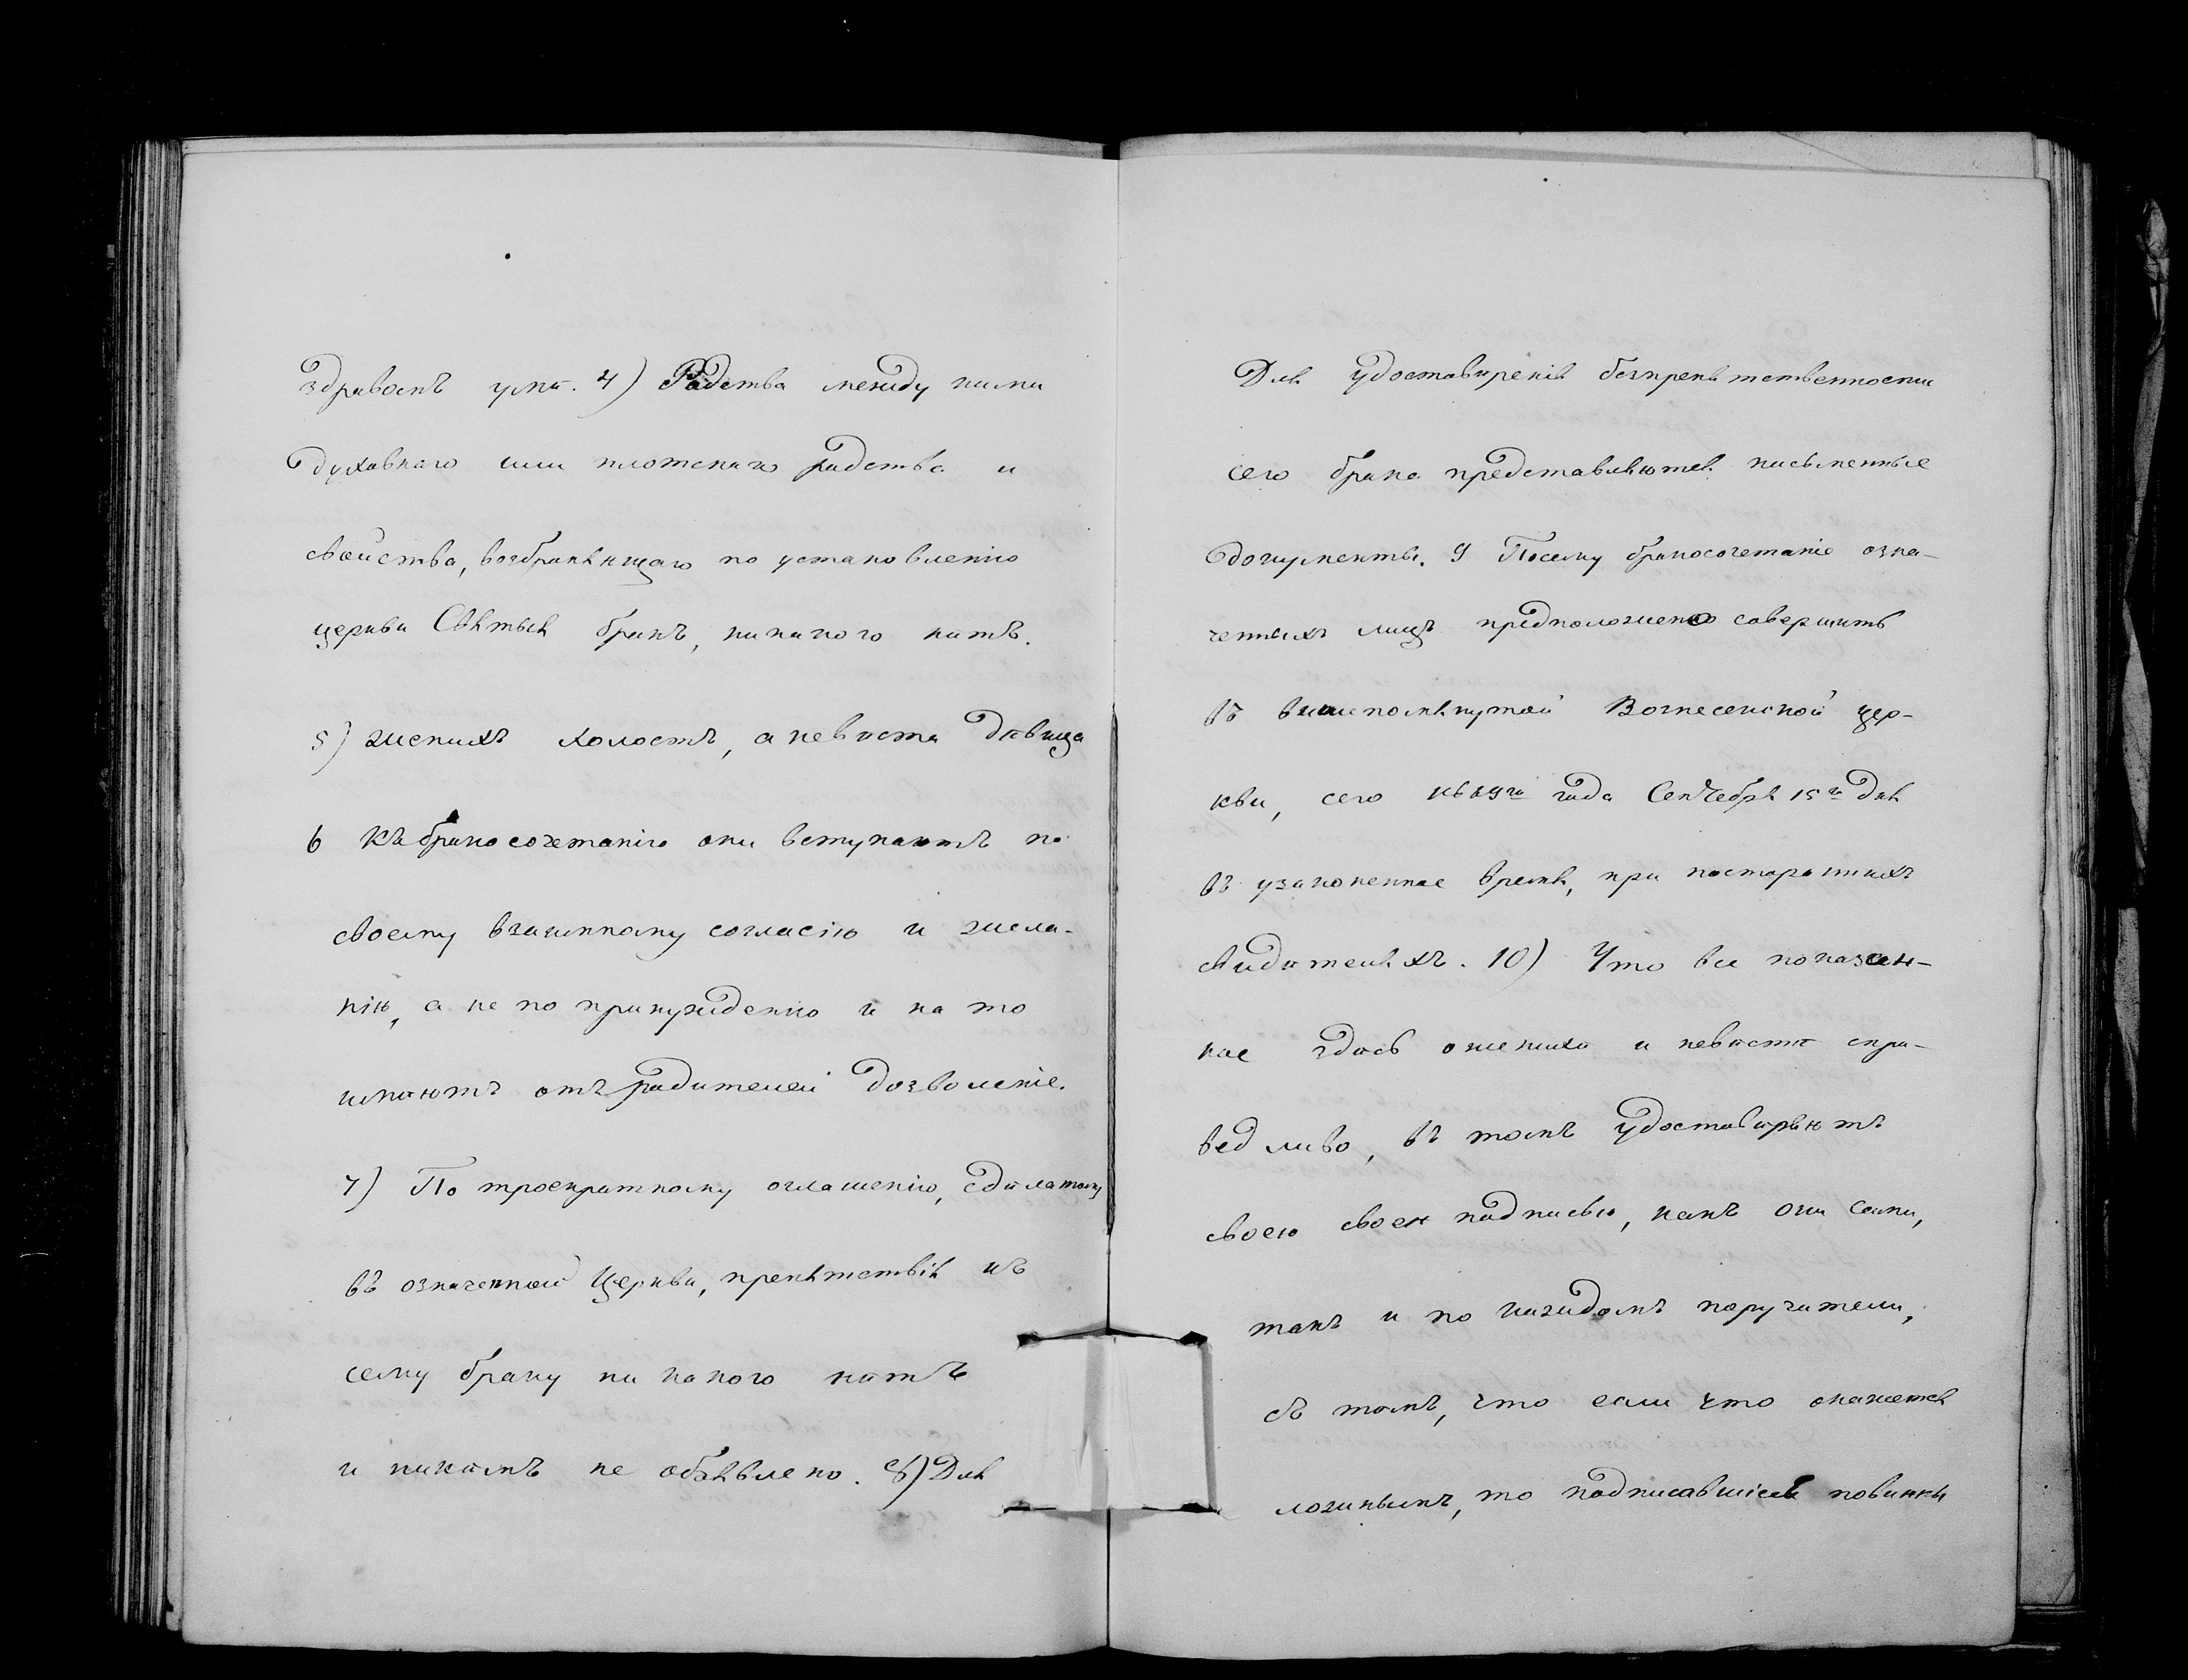 здравомъ умѣ. 4) Радства между ними
духовнаго или плотскаго радства и
свойства, возбраняющаго по установленію
церкви Святыя бракъ, никакого нѣтъ.
5) женихъ холостъ, а невѣста дѣвица
6 Къ бракосочетанію они вступаютъ по
своему взаимному согласію и жела-
нію, а не по принужденію и на то
имѣютъ отъ радителей дозволеніе.
7) По троекратному оглашенію, сдѣлатому
въ означенной Церкви, препятствія къ
сему браку ни какого нѣтъ
и никѣмъ не объявлено. 8) Для
Для удоставѣренія безпрепятственности
сего брака представляются письменные
документы. 9 Посему бракосочетаніе озна-
ченныхъ лицъ предположено савершить
въ вышепомянутой Вознесенской цер-
кви, сего года Сентебря 15го дня
въ узаконенное время, при пасторонныхъ
свидѣтеляхъ. 10) Что все показан-
ное здѣсь о женихѣ и невѣстѣ спра-
ведливо, въ томъ удоставѣряютъ
своею своею падписью, какъ они сами,
такъ и по каждомъ поручители,
съ тѣмъ, что если что окажется
ложнымъ, то падписавшіеся повинны